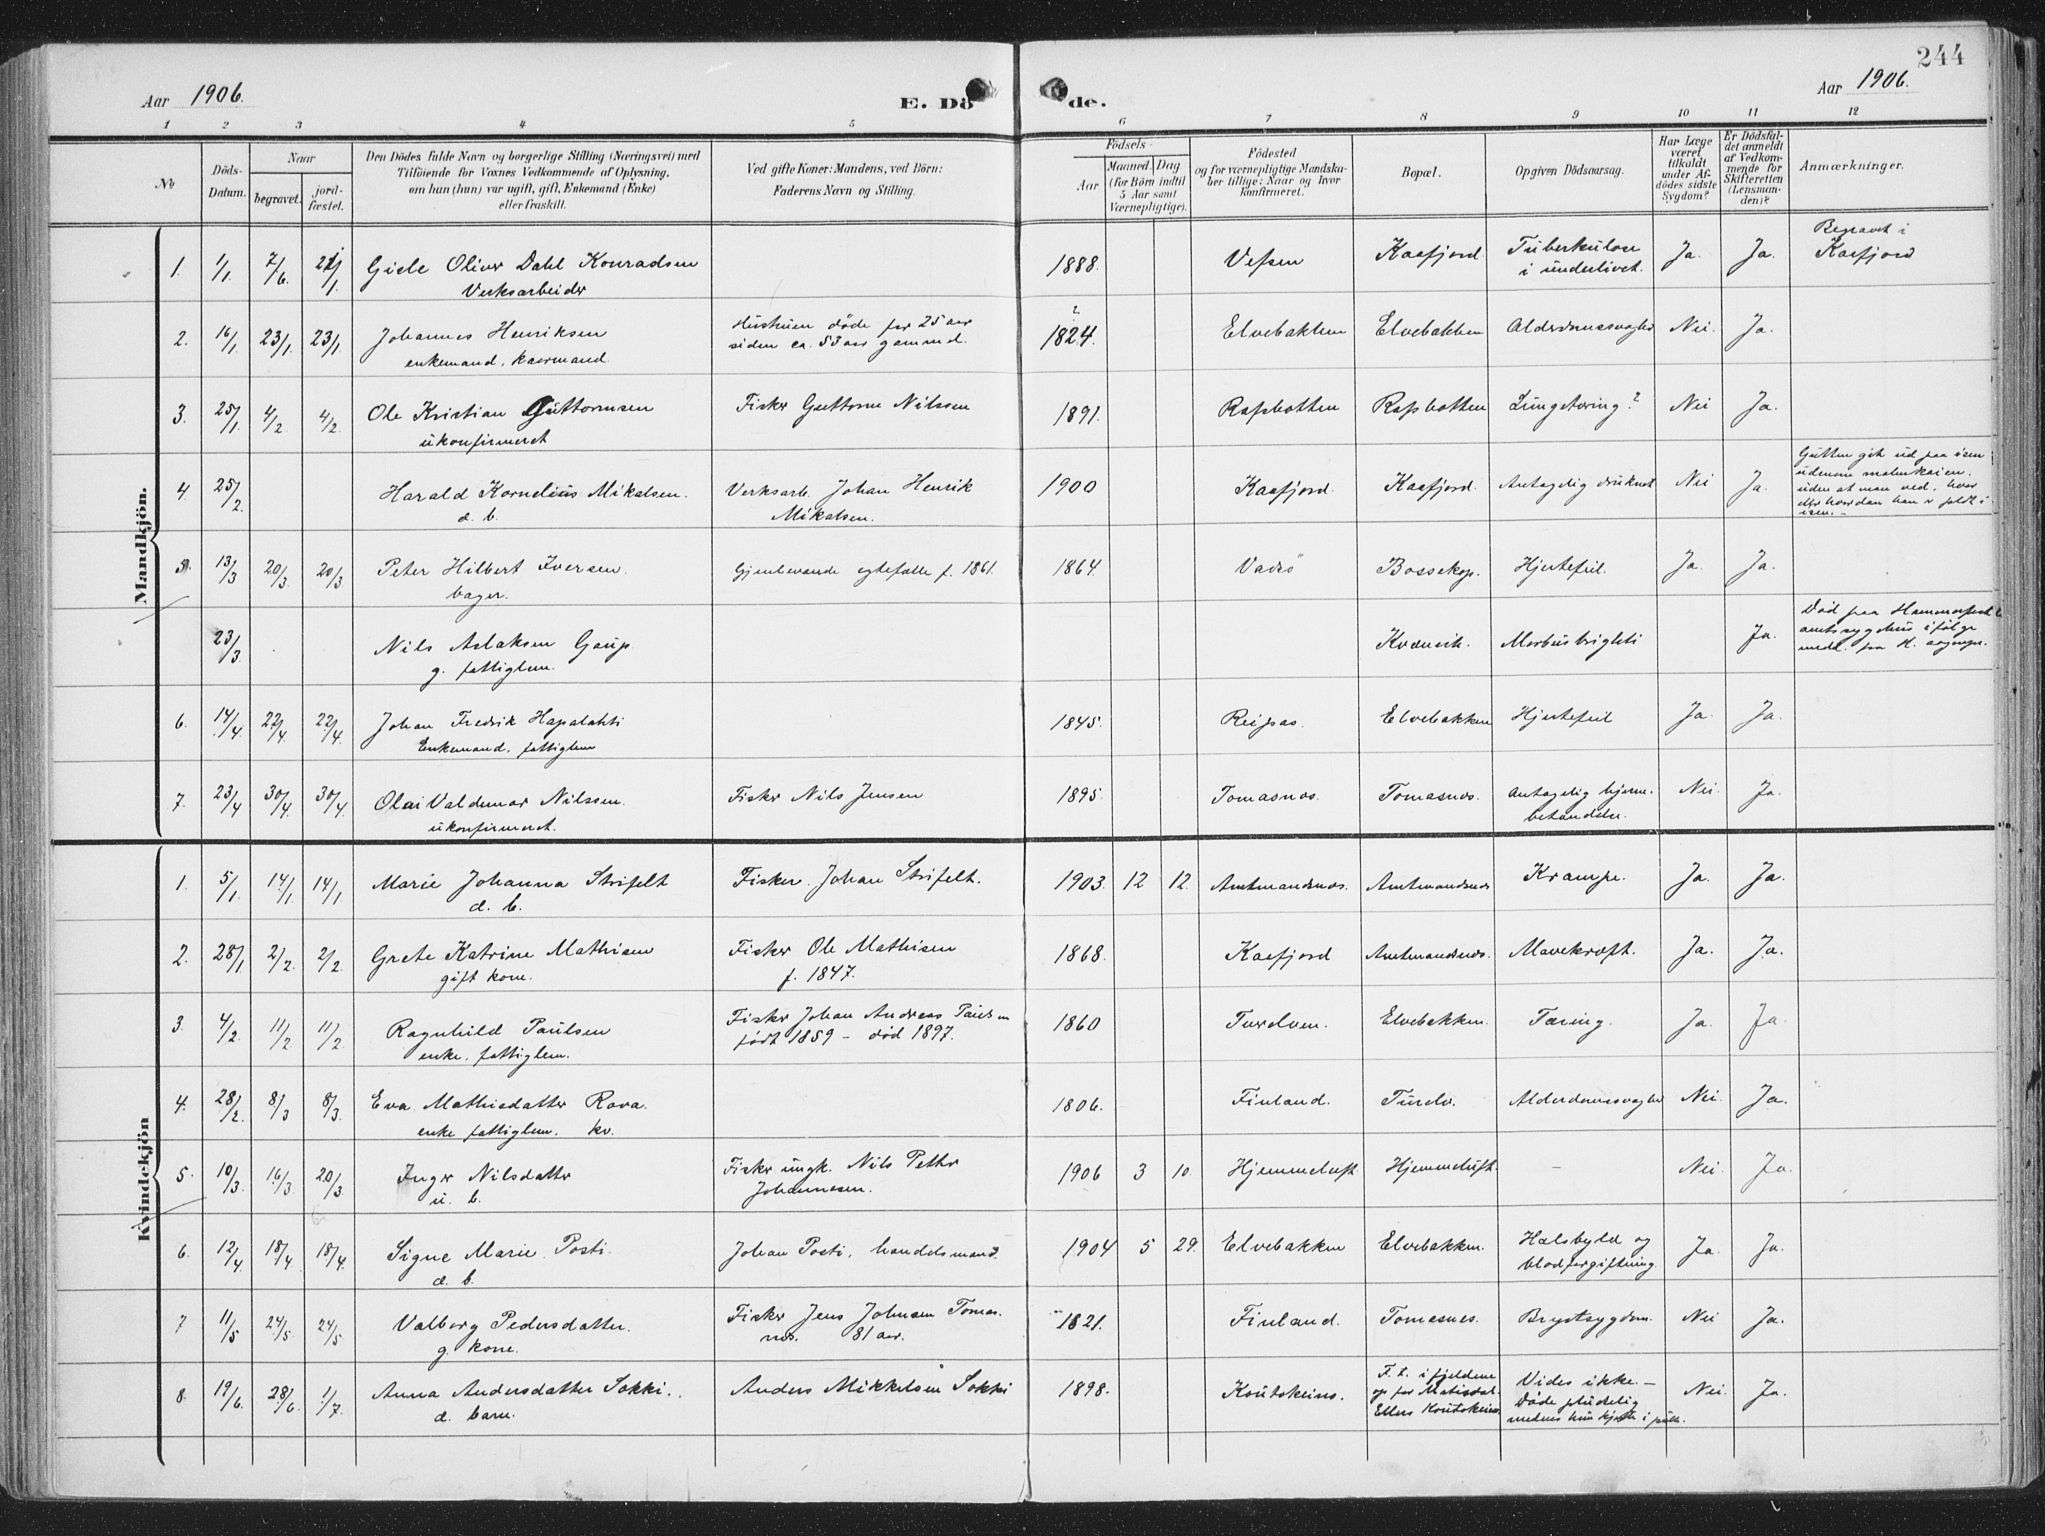 244
Aar 1906.
E. Döde.
Aar 1906.
1 2 3 4 5 6 7 8 9 10 11 12
No
Döds-Datum.
Naar
begravet.
jord-fæstet.
Den Dödes fulde Navn og borgerlige Stilling (Næringsvei) med
Tilföiende for Voxnes Vedkommende af Oplysning,
om han (hun) var ugift, gift, Enkemand (Enke)
eller fraskilt.
Ved gifte Koner: Mandens, ved Börn:
Faderens Navn og Stilling.
Födsels-
Aar
Maaned. Dag
(for Börn indtil
5 Aar samt
Værnepligtige).
Födested
og for værnepligtige Mandska-
ber tillige: Naar og hvor
konfirmeret.
Bopæl.
Opgiven Dödsaarsag.
Har Læge
været
tilkaldt
under Af-
dödes sidste
Sygdom?
Er Dödsfal-
det anmeldt
af Vedkom-
mende for
Skifteretten
(Lensman-
den)?
Anmærkninger.
Mandkjön.
1. 1/1 7/6. 21/1. Gisle Oliver Dahl Konradsen 1888. Vefsen Kaafjord Tuberkulose Ja. Ja. Begravet i
Verksarbeider i underlivet. Kaafjord
2. 16/1. 23/1. 23/1. Johannes Henriksen Hustruen døde for 25 aar 1824. ? Elvebakken Elvebakken Alderdomssvaghed Nei. Ja.
enkemand, kaarmand siden ca. 53 aar gammel.
3. 25/1. 4/2 4/2. Ole Kristian Guttormsen Fisker Guttorm Nilssen 1891. Rafsbotten Rafsbotten Lungetæring? Nei Ja.
ukonfirmeret
4. 25/2. Harald Kornelius Mikalsen. Verksarb. Johan Henrik 1900 Kaafjord. Kaafjord. Antagelig druknet Nei Ja. Gutten gik ud paa isen
d. b. Mikalsen. udenom malmkaien.
uden at man ved, hvor
eller hvordan han er faldt i
isen. -
5. 13/3 20/3. 20/3 Peter Hilbert Iversen. Gjenlevende egtefælle f. 1861. 1864. Vadsö Bossekop. Hjertefeil. Ja. Ja.
bager.
23/3. Nils Aslaksen Gaup. Morbus brighti Ja. Død paa Hammerfest
g. fattiglem. amtssygehus ifølge
medd. fra H. sognepr.
6. 14/4. 22/4 22/4. Johan Fredrik Hapalahti 1845. Reipas. Elvebakken Hjertefeil Ja. Ja.
Enkemand, fattiglem
7. 23/4 30/4 30/4. Olai Valdemar Nilssen. Fisker Nils Jensen 1895. Tomasnes. Tomasnes. antagelig hjerne- Nei. Ja.
ukonfirmeret. betændelse.
Kvindekjön
1. 5/1. 14/1. 14/1 Marie Johanna Strifelt Fisker. Johan Strifelt. 1903. 12 12. Amtmandsnes. Amtmandsnes Krampe. Ja. Ja.
d. b.
2. 28/1 2/2. 2/2. Grete Katrine Mathisen Fisker Ole Mathisen 1868. Kaafjord Amtmandsnes. Mavekræft. Ja. Ja.
gift kone. f. 1847.
3. 4/2. 11/2 11/2. Ragnhild Paulsen Fisker Johan Andreas Paulsen 1860 Turelven. Elvebakken. Tæring. Ja. Ja.
enke. fattiglem. født 1859 - død 1897.
4. 28/2. 8/3 8/3. Eva Mathisdatter Rava. 1806. Finland. Turelv. Alderdomssvaghed Nei. Ja.
enke fattiglem. kv.
5. 10/3. 16/3 20/3. Inger Nilsdatter Fisker ungk. Nils Petter 1906 3 10. Hjemmeluft Hjemmeluft. - Nei. Ja.
u. b. Johannesen.
6. 12/4 18/4 18/4. Signe Marie Posti. Johan Posti, handelsmand. 1904 5 29. Elvebakken Elvebakken. Halsbyld og Ja. Ja.
d. b. blodforgiftning.
7 11/5 24/5. 24/5 Valborg Pedersdatter. Fisker Jens Johnsen Tomas- 1821. Finland. Tomasnes. Brystsygdom. Nei Ja.
g. kone. nes. 81 aar.
8. 19/6. 28/6. 1/7. Anna Andersdatter Sokki. Anders Mikkelsen Sokki 1898. Koutokeino. F. t. i fjeldene Vides ikke - Nei. Ja.
d. barn. op for Matisdal. Døde pludselig
Ellers Koutokeino medens hun kjørte i pulk.